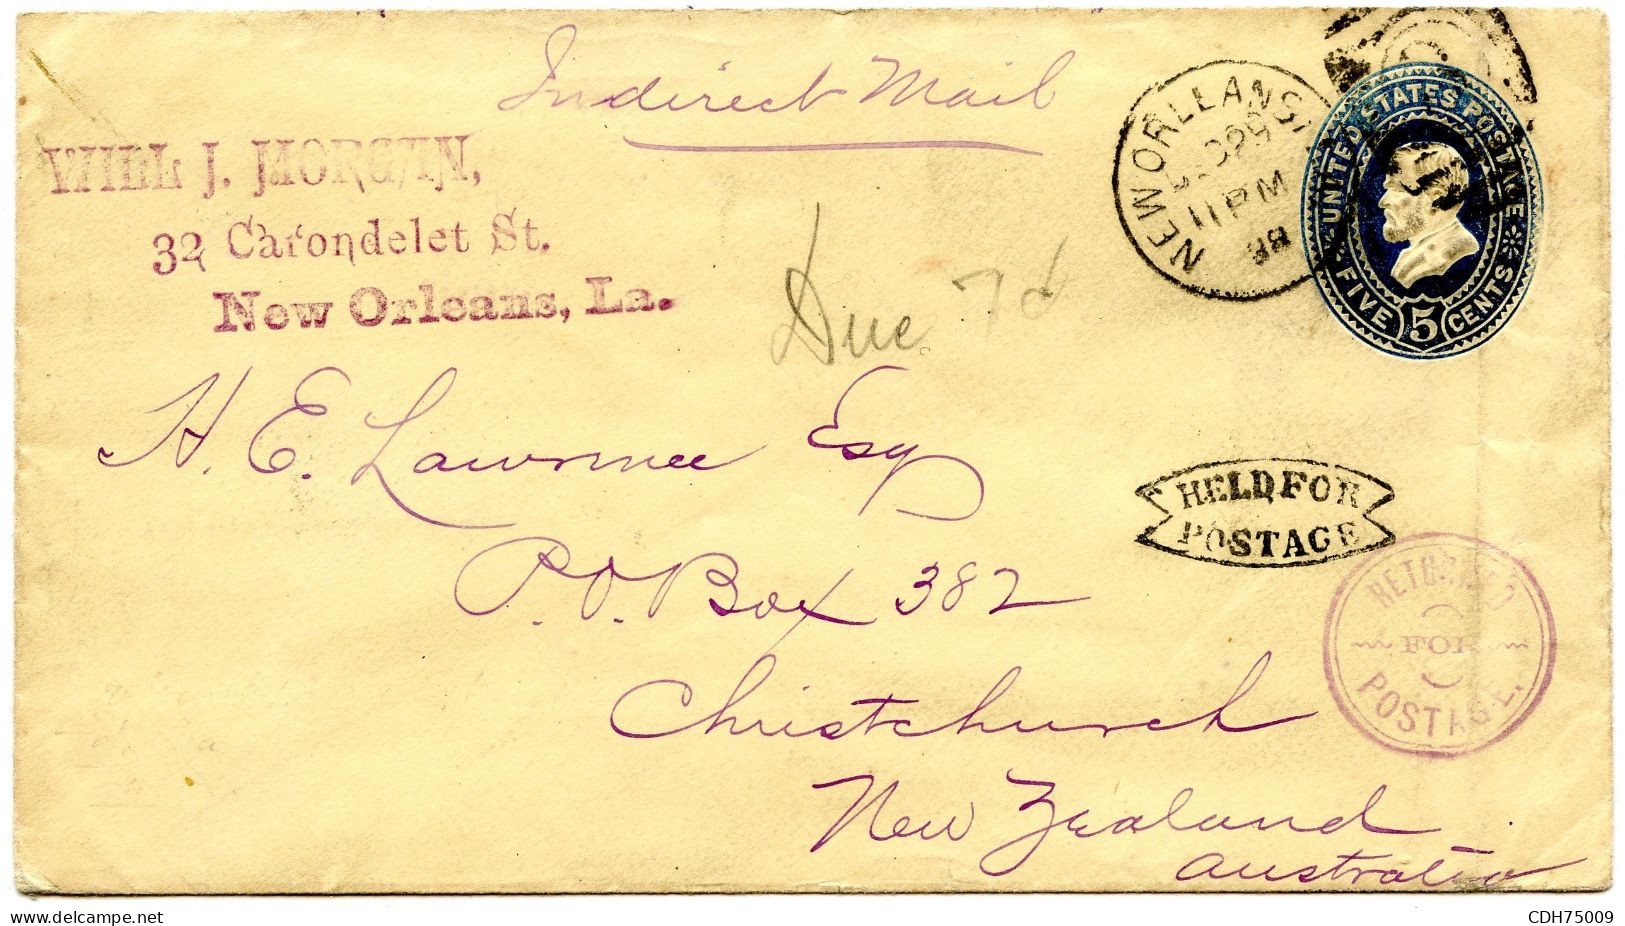 Indirect Mail
WILL J. MORGAN,
32 Carondelet St.
New Orleans, La.
NEW ORLEANS
29
11 PM
88
UNITED STATES POSTAGE
FIVE 5 CENTS
Due 7d
H. E. Lawrence Esq
P.O. Box 382
Christchurch
New Zealand
HELD FOR
POSTAGE
RETURNED
FOR
POSTAGE.
CDH75009